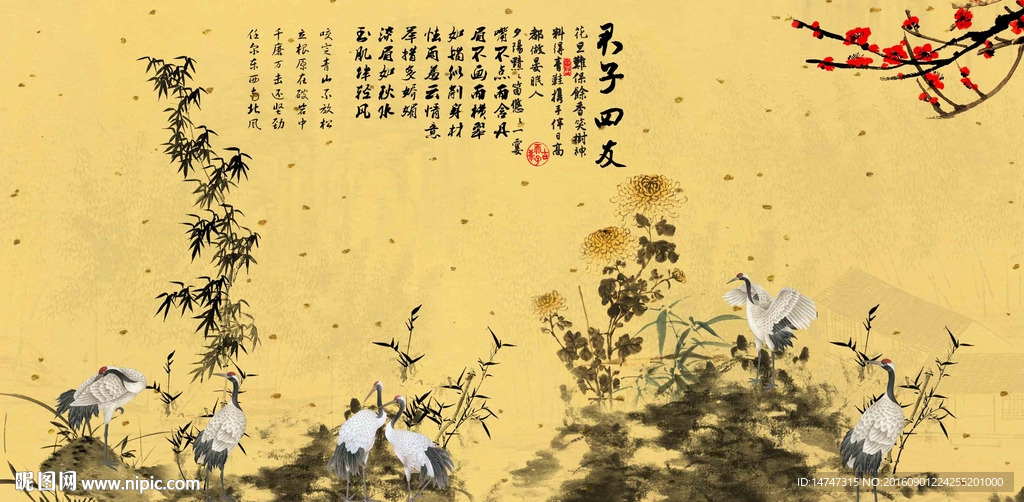 君子四友
花里難保餘香笑樹神
料得喜鞋携手伴日高
都做晏眠人
夕陽贖笛悠一霎
嘴不点而含丹
眉不画而横翠
如描似削身材
怯雨羞云情意
举措多娇媚
淡眉如秋水
玉肌伴轻风
咬定青山不放松
立根原在破岩中
千磨万击还坚劲
任尔东西南北风
昵图网 www.nipic.com
ID:14747315 NO:20160901224255201000